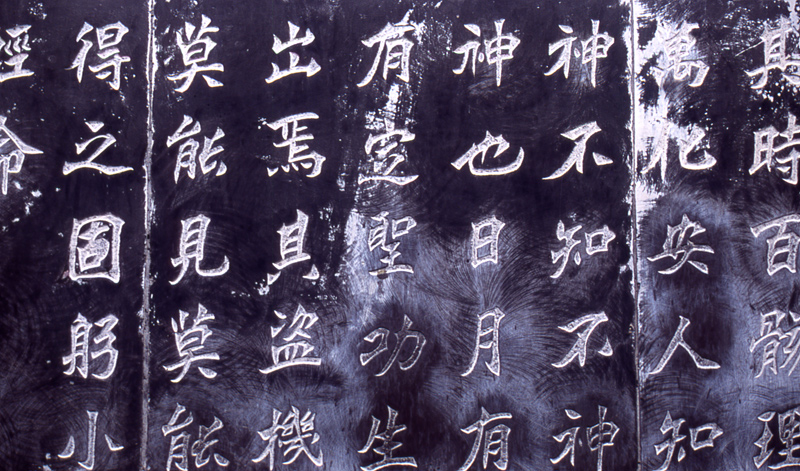 其時百骸理
萬化安人知
神不知不神
神也日月有
有定聖功生
出焉其盜機
莫能見莫能
得之固躬小
命